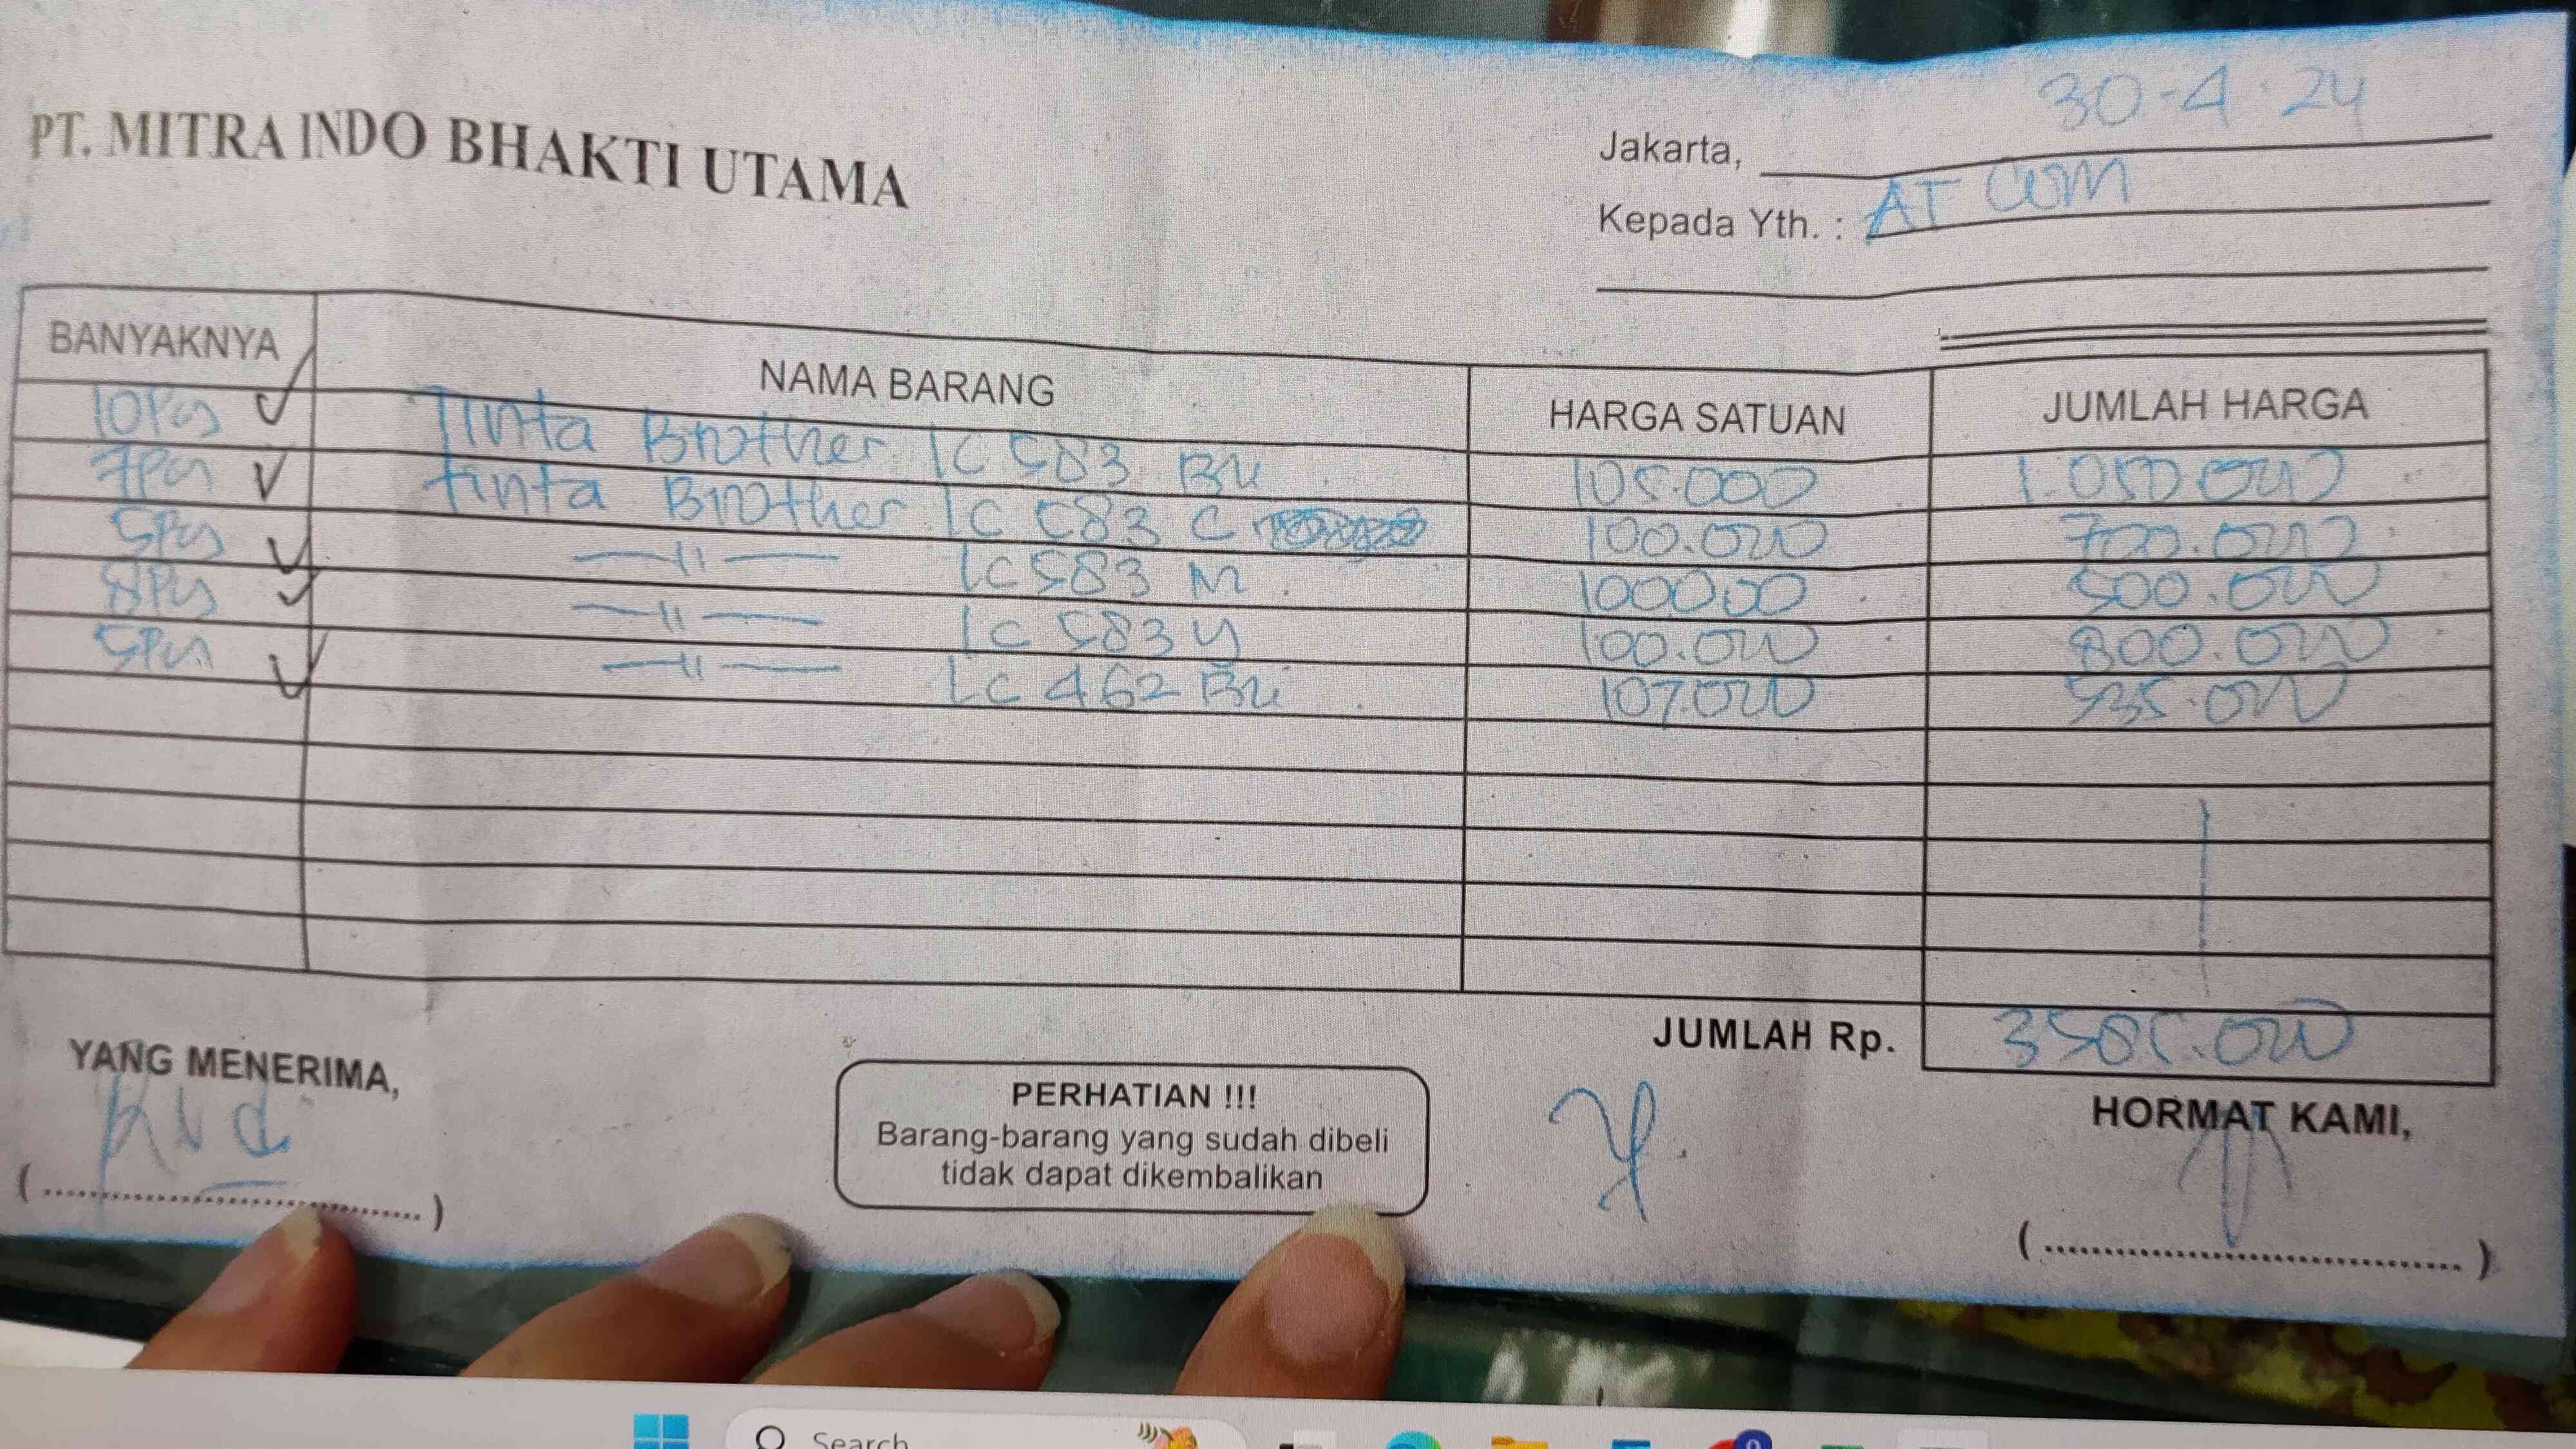 PT. MITRA INDO BHAKTI UTAMA
30-4-24
Jakarta,
Kepada Yth. : AT COM
BANYAKNYA NAMA BARANG HARGA SATUAN JUMLAH HARGA
10Pcs Tinta Brother LC 583 BK 105.000 1.050.000
7Pcs tinta Brother LC 583 C 100.000 700.000
5Pcs —〃— LC 583 M 100000 500.000
8Pcs —〃— LC 583 Y 100.000 800.000
5Pcs —〃— LC 462 BK 107.000 535.000
JUMLAH Rp. 3585.000
YANG MENERIMA,
PERHATIAN !!!
Barang-barang yang sudah dibeli
tidak dapat dikembalikan
HORMAT KAMI,
(........................................)
(........................................)
Search